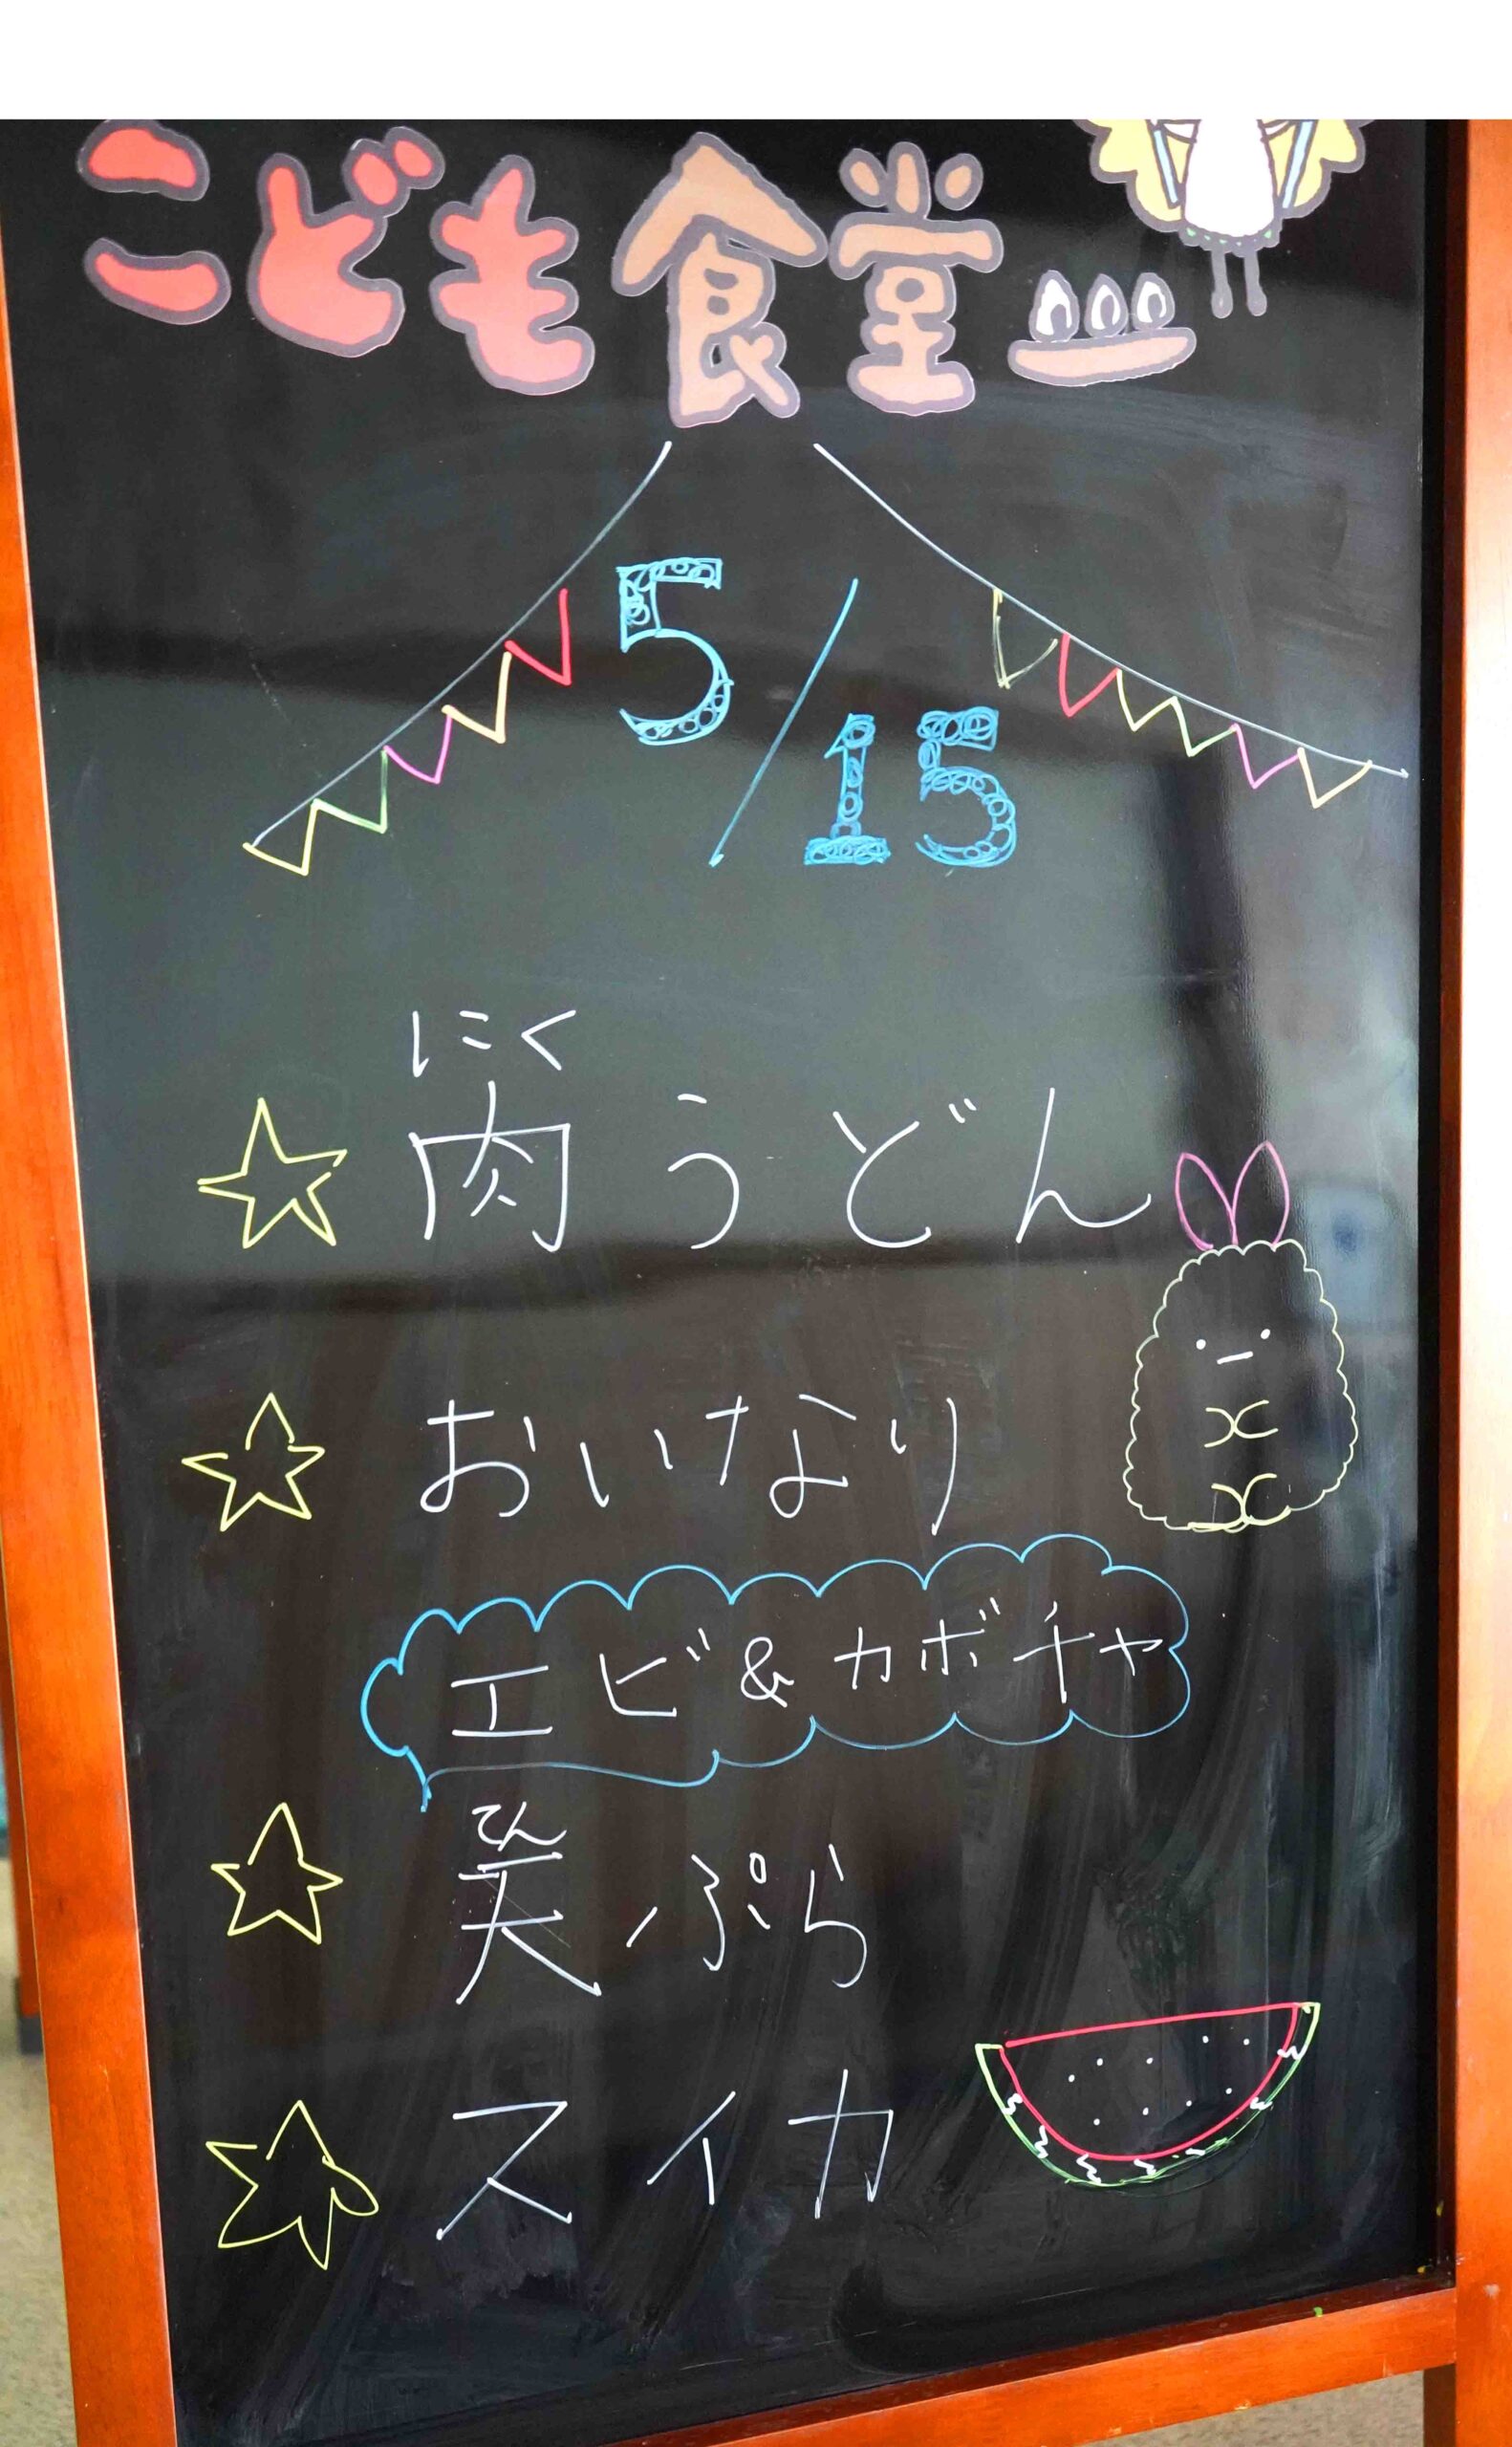 こども食堂
5/15
にく
☆ 肉うどん
☆ おいなり
エビ&カボチャ
てん
☆ 天ぷら
☆ スイカ